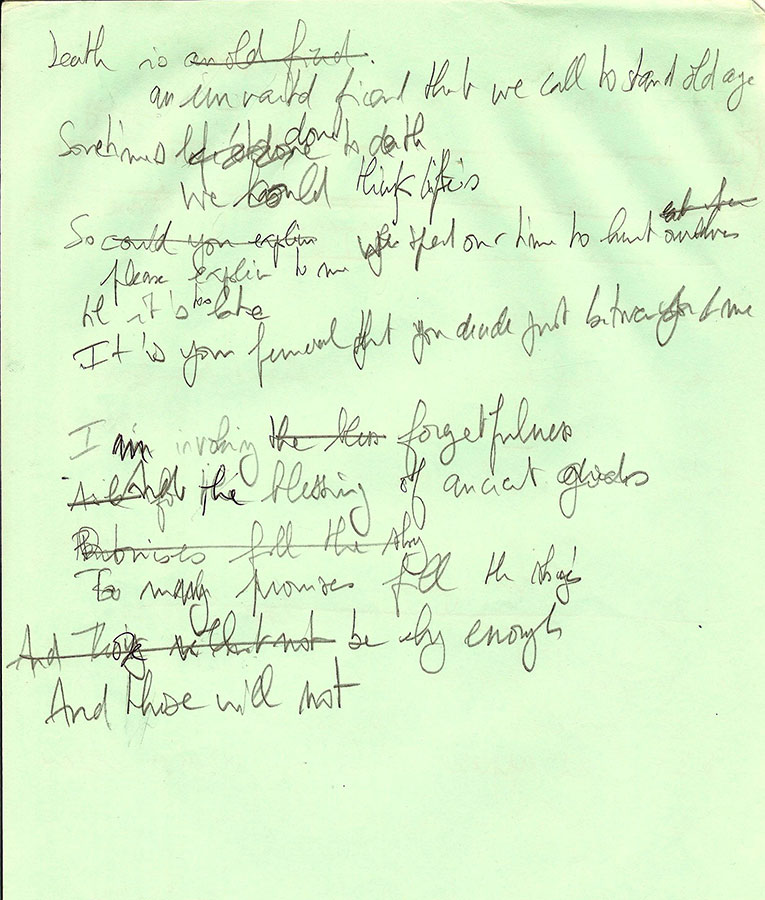 Death is an old friend.
an unwanted friend that we call to stand old age
Sometimes done to death
We could think life is
So could you explain we spend our time to hunt ourselves
please explain to me
it's too late
It is your funeral that you decide just between you & me
I am invoking the bless forgetfulness
And for the blessing of ancient gods
promises fill the sky
Too many promises fill the
And those will not be enough
And those will not